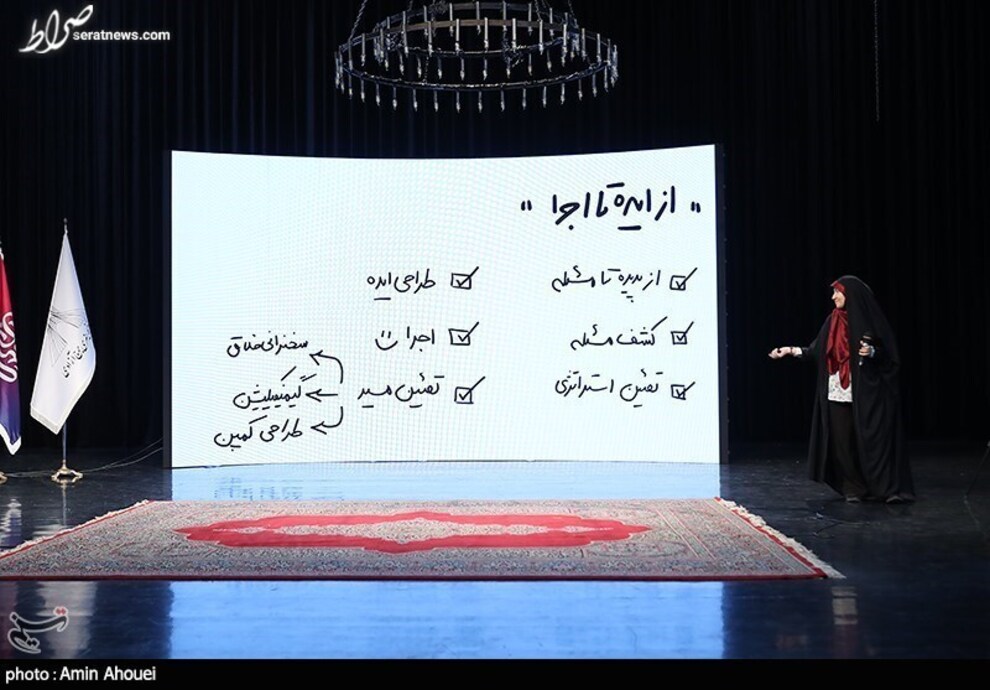 صراط
seratnews.com
" از ایده تا اجرا "
از پدیده تا مسئله
کشف مسئله
تعیین استراتژی
طراحی ایده
اجرا
تعیین مسیر
سخنرانی خلاق
گیمیفیکیشن
طراحی کمپین
تسنیم
photo : Amin Ahouei